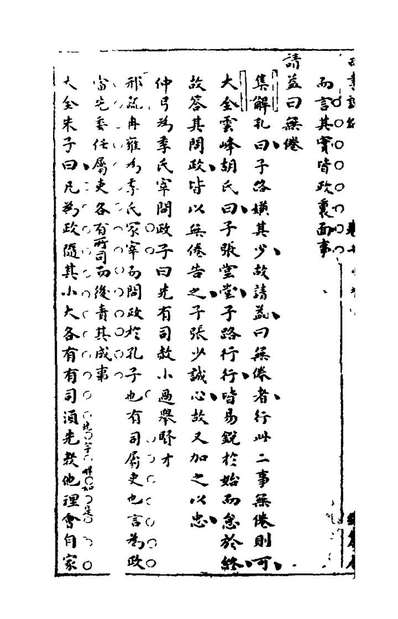 而言其實皆政裏面事
請益曰無倦
集解孔曰子路嫌其少故請益曰無倦者行此二事無倦則可
大全雲峰胡氏曰子張堂堂子路行行皆易銳於始而怠於終
故答其問政皆以無倦告之子張少誠心故又加之以忠
仲弓為季氏宰問政子曰先有司赦小過舉賢才
邢疏冉雍為季氏家宰而問政於孔子也有司屬吏也言為政
當先委任屬吏各有所司而後責其成事
大全朱子曰凡為政隨其小大各有有司須先教他理會自家